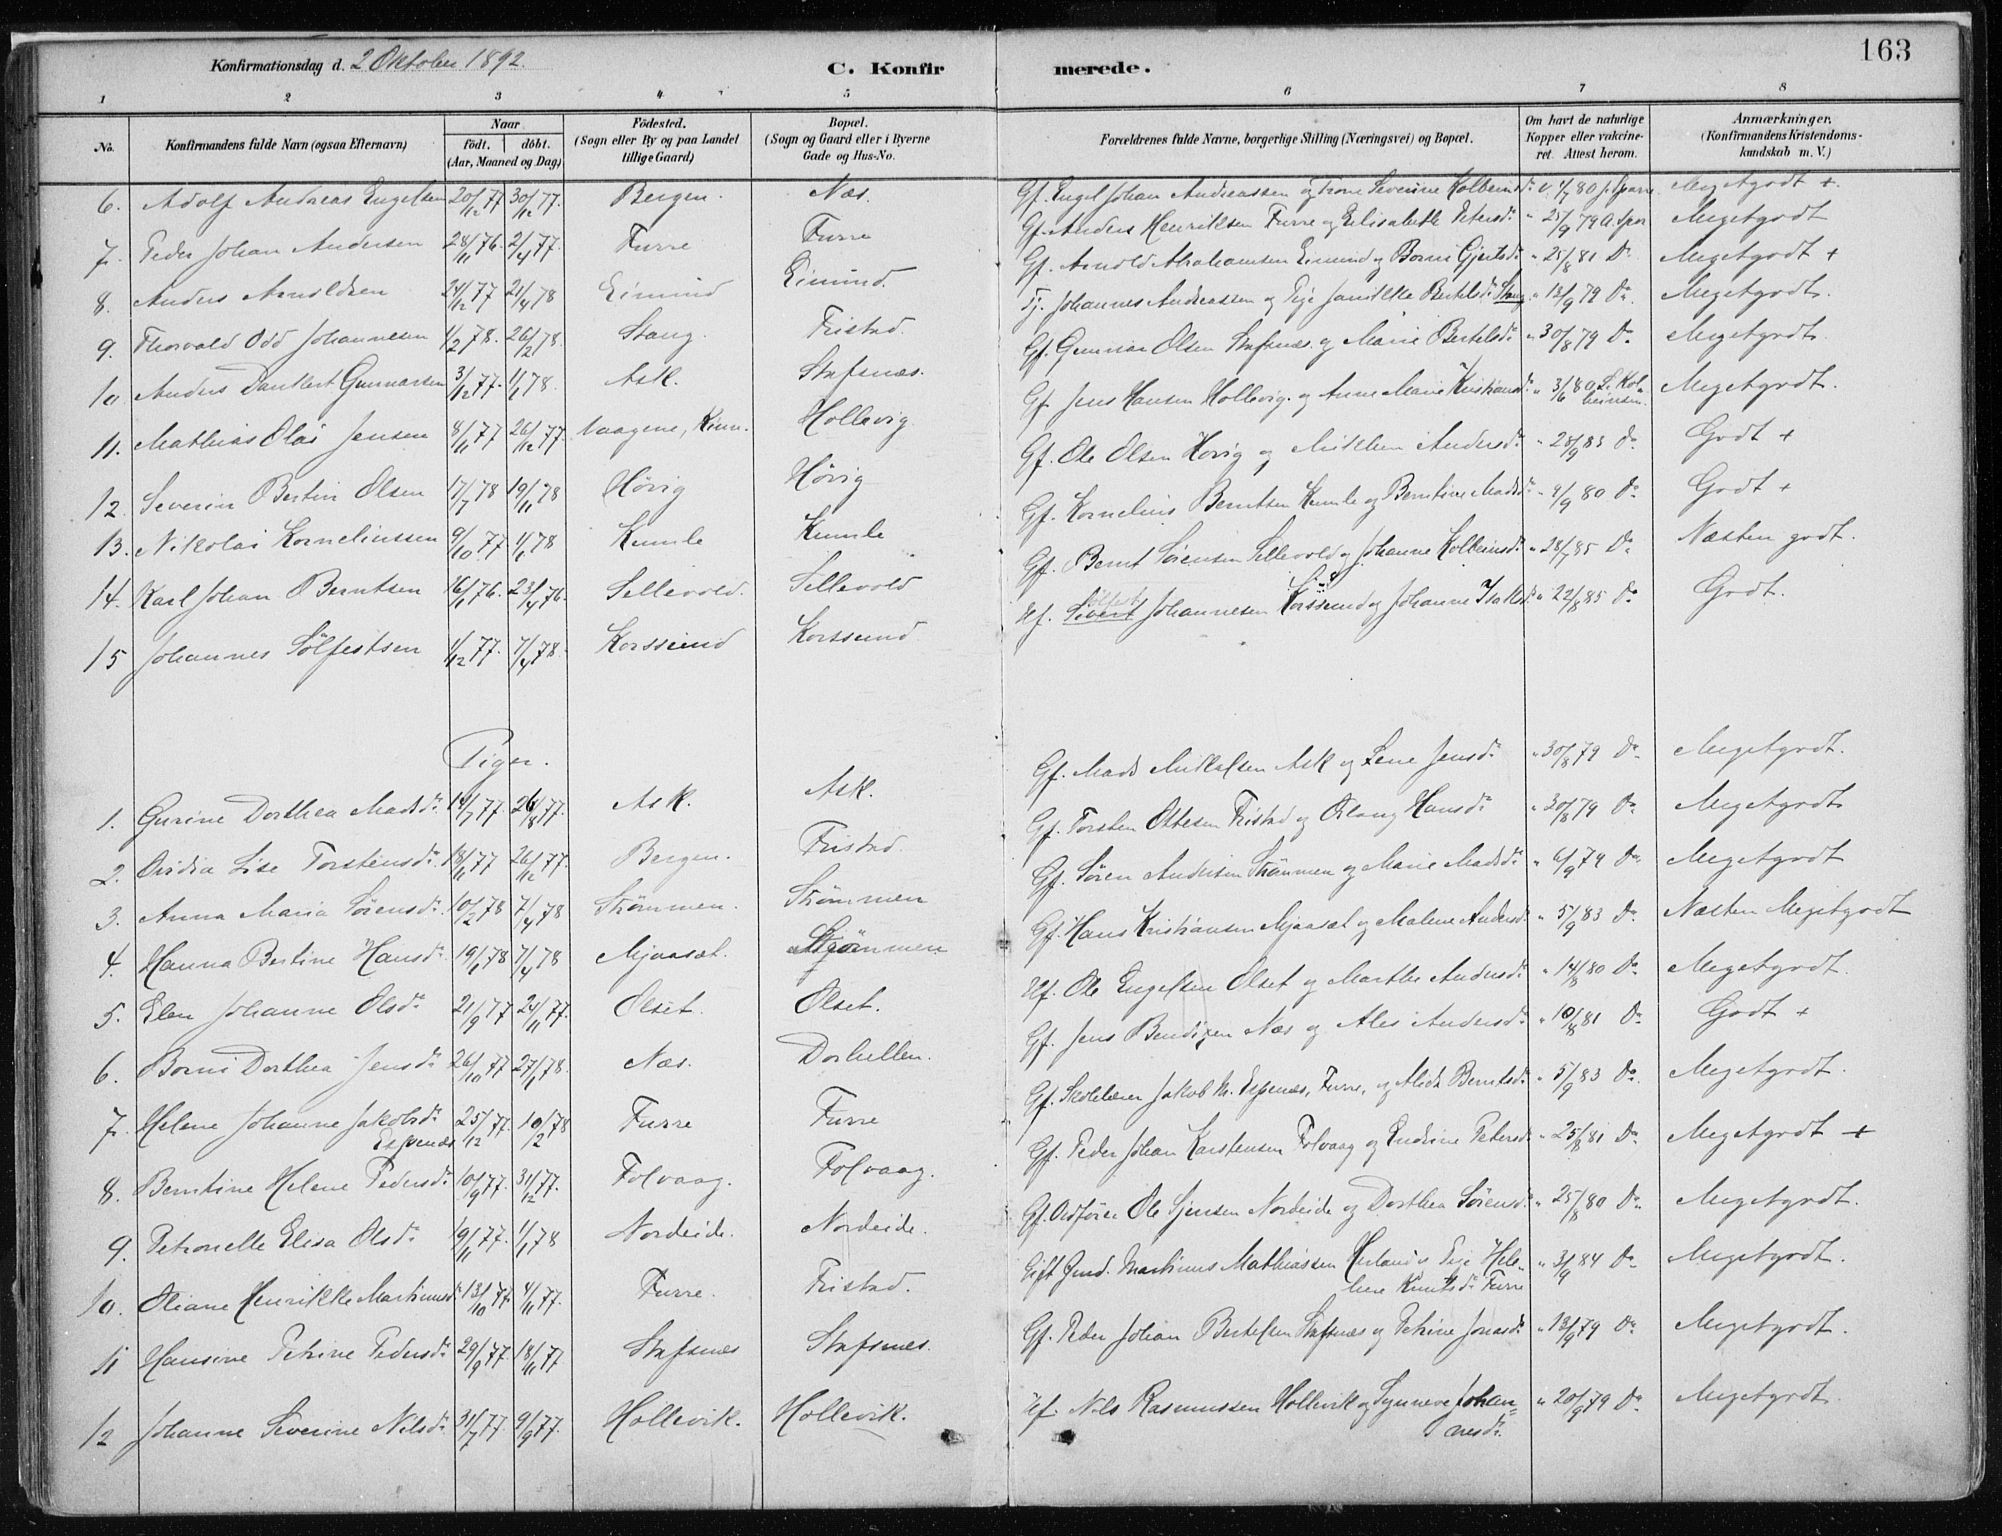 163
Konfirmationsdag d. 2 Oktober 1892.
C. Konfirmerede.
1 2 3 4 5 6 7 8
No. Konfirmandens fulde Navn (ogsaa Efternavn) Naar født. døbt. (Aar, Maaned og Dag) Fødested. (Sogn eller By og paa Landet tillige Gaard) Bopæl. (Sogn og Gaard eller i Byerne Gade og Hus-No. Forældrenes fulde Navne, borgerlige Stilling (Næringsvei) og Bopæl. Om havt de naturlige Kopper eller vakcineret. Attest herom. Anmerkninger. (Konfirmandens Kristendomskundskab m. V.)
6. Adolf Andreas Engelsen 20/12 77 30/12 77. Bergen. Næs. Gf. Engel Johan Andreassen og Severine Kolbeinsdr v. 1/7 80 Megetgodt +
7. Peder Johan Andersen 28/11 76. 2/4 77. Furre Furre Gf. Anders Henriksen Furre og Elisabeth Petersdr " 25/9 79 Megetgodt
8. Anders Arnoldsen 24/12 77 21/4 78 Eimind Eimind. Gf. Arnold Abrahamsen Eimind og Borni Gjertsdr " 25/8 81 Do Megetgodt +
9. Thorvald Odd Johannesen 1/2 78. 26/2 78. Stang. Tristad. Johannes Andreassen og Pige Janikke Bertelsdr Stang " 13/9 79 Do. Megetgodt.
10 Anders Dankert Gunnarsen 3/12 77. 1/1 78. Ask. Stafsnæs. Gf. Gunnar Olsen Stafsnæs. og Marie Bertelsdr " 30/8 79 Do Megetgodt.
11. Mathias Olai Jensen 8/11 77 26/12 77. Vaagene, Kinn. Hollevig. Gf. Jens Hansen Hollevig. og Anne Marie Kristiansdr " 3/6 80 S. Kolbeinsen. Megetgodt.
12 Severin Bertin Olsen 17/7 78 19/11 78 Hövig Hövig Gf. Ole Olsen Hövig og Andersdr " 28/9 83 Do Godt +
13. Nikolai Korneliussen 9/10 77 1/1 78 Kumle Kumle Gf. Kornelius Berntsen Kumle og Berntine Madsdr " 9/9 80 Do Godt +
14. Karl Johan Berntsen 16/1 76. 23/4 76. Sellevold. Sellevold Gf. Bernt Sørensen Sellevold og Johanne Kolbeinsdr " 28/7 85 Do Næsten godt.
15 Johannes Sölfestsen 1/12 77. 7/4 78. Korssund Korssund Uf. Sivert Sölfest Johannesen Korssund og Johanne Isaksdr " 22/8 85 Do Godt.
Piger.
1. Gurine Dorthea Madsdr 14/7 77 26/8 77. Ask. Ask. Gf. Mads Mikkelsen Ask og Lene Jensdr " 30/8 79 Do Megetgodt.
2. Ovidia Lise Torstensdr 18/11 77 26/12 77. Bergen. Tristad. Gf. Torsten Ottesen Tristad og Hansdr " 30/8 79 Do Megetgodt
3. Anna Maria Sörensdr 10/2 78 7/4 78 Strømmen. Strømmen Gf. Sören Andersen Strømmen og Marie Madsdr " 6/9 79 Do Megetgodt
4. Hanna Bertine Hansdr 19/1 78 7/4 78 Mjaaset. Strømmen Gf. Hans Kristiansen Mjaaset og Malene Andersdr " 5/9 83 Do Næsten Megetgodt
5. Elen Johanne Olsdr 21/9 77 24/11 77. Olset. Olset. Uf. Ole Engelsen Olset og Marthe Andersdr " 14/8 80 Do Megetgodt.
6. Borni Dorthea Jensdr 26/10 77 27/1 78. Næs. Dorhellen. Gf. Jens Bendixen Næs og Ales Andersdr " 10/8 81 Do Godt +
7. Helene Johanne Jakobsdr Espenæs 25/12 77. 10/2 78 Furre Furre Gf. Skolelærer Jakob M. Espenæs, Furre, og Alida Berntsdr " 5/9 83 Do. Megetgodt.
8. Berntine Helene Pedersdr 10/9 77. 31/12 77. Folvaag. Folvaag. Gf. Peder Johan Karstensen Folvaag og Endrine Petersdr " 25/8 81 Do Megetgodt +
9. Petronelle Elisa Olsdr 19/11 77. 1/1 78 Nordeide. Nordeide. Gf. Ordfører Ole Nordeide og Dorthea Sörensdr " 25/8 80 Do Megetgodt.
10. Oliane Henrikke Martinusdr 13/10 77. 4/11 77. Furre. Tristad. Gift Martinus Mathiassen Herland, Pige Helene Knutsdr Furre " 3/9 84 Do Megetgodt.
11 Hansine Petrine Pedersdr 29/9 77. 18/11 77 Stafsnæs Stafsnæs. Gf. Peder Johan Bertelsen Stafsnæs og Petrine Jonasdr " 13/9 79 Do Megetgodt.
12 Johanne Severine Nilsdr 31/7 77. 9/9 77. Hollevik. Hollevik. Uf. Nils Rasmussen Hollevik og Synneve Johannesdr. " 20/9 79 Do Megetgodt.